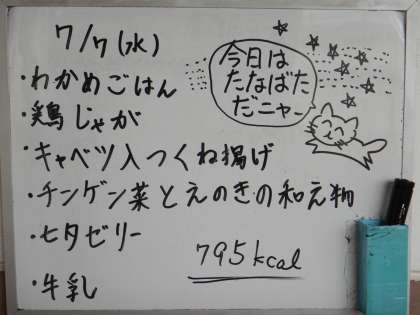 7/7(水)
・わかめごはん
・鶏じゃが
・キャベツ入つくね揚げ
・チンゲン菜とえのきの和え物
・七夕ゼリー
・牛乳
795kcal
今日は
たなばた
だニャー